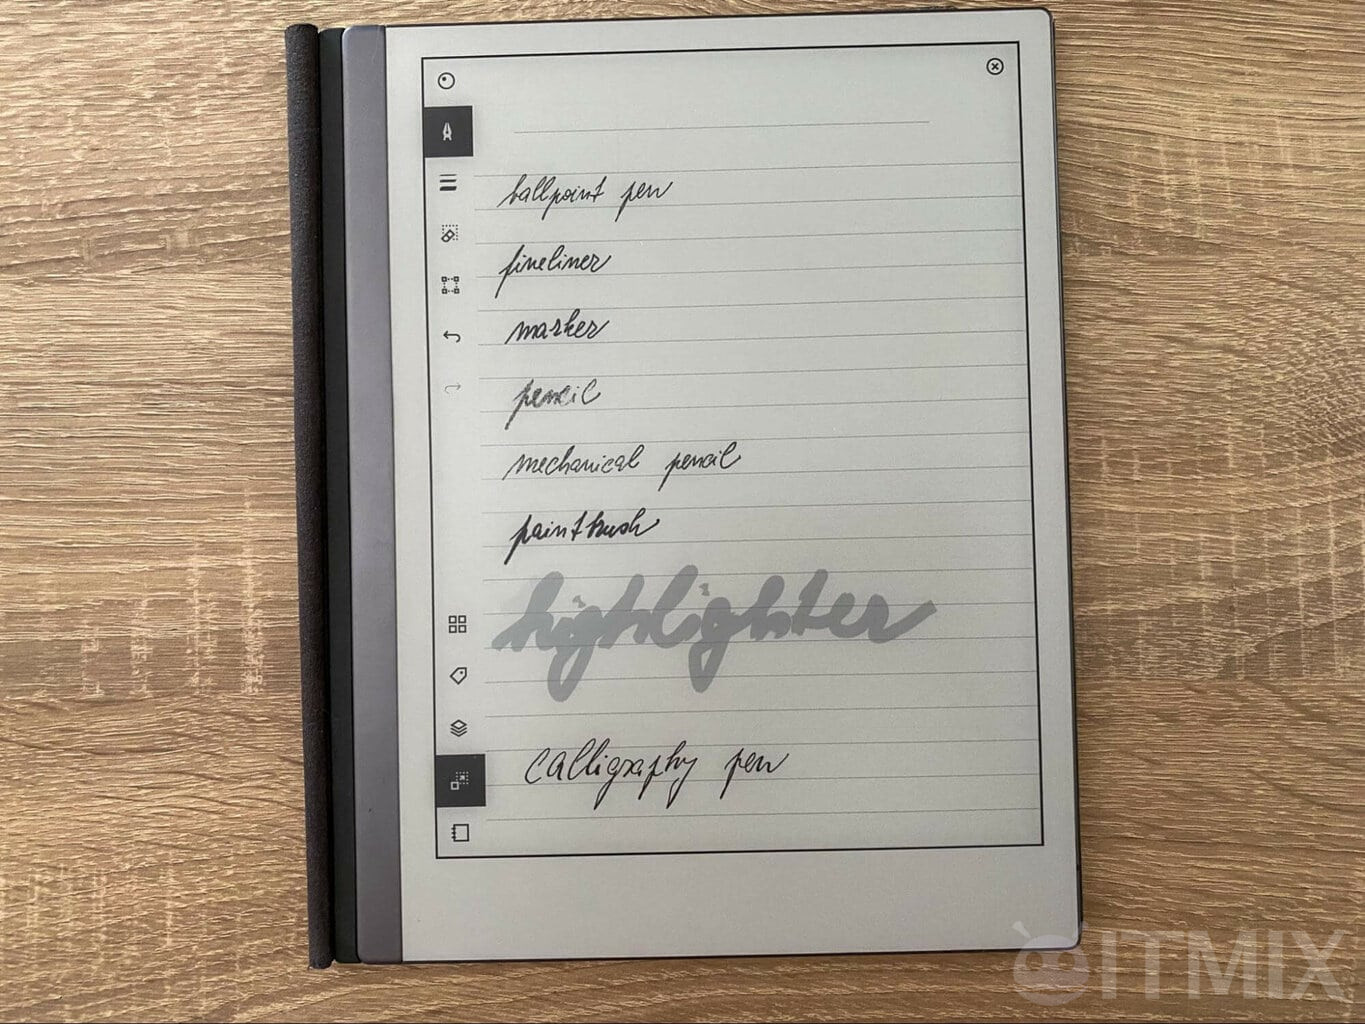 ballpoint pen
fineliner
marker
pencil
mechanical pencil
paintbrush
highlighter
calligraphy pen
ITMIX